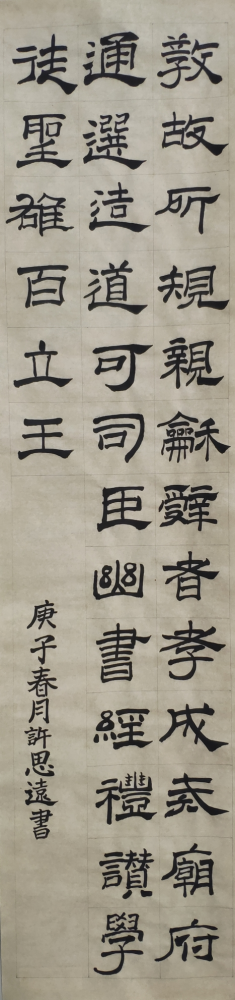 教故所規親龢辟者孝成表廟府
通選造道可司臣幽書經禮讃學
徒聖雒百立王
庚子春月許思遠書